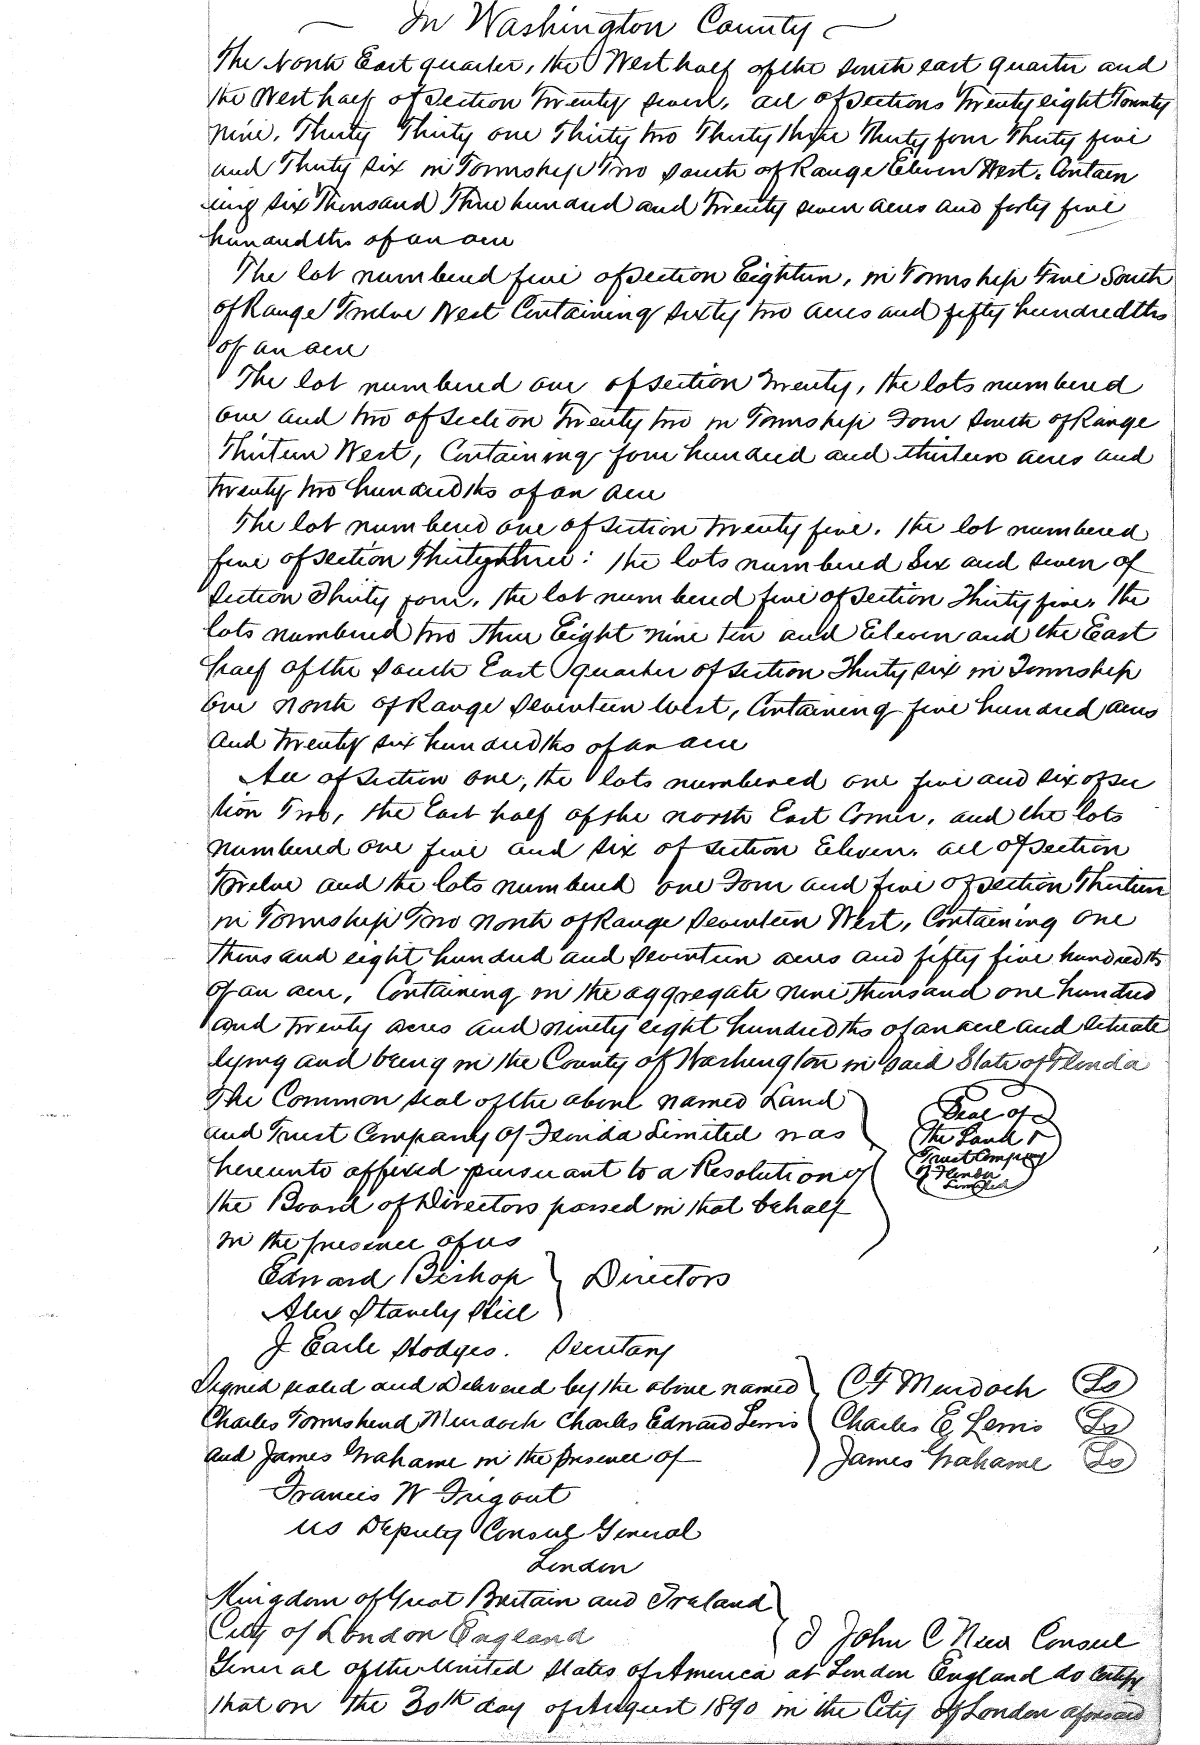 In Washington County
The North East quarter, the West half of the south east quarter and
the West half of section Twenty seven, all of sections Twenty eight Twenty
nine, Thirty Thirty one Thirty two Thirty three Thirty four Thirty five
and Thirty six in Township Two south of Range Eleven West. Contain
ing six Thousand Three hundred and Twenty seven acres and forty five
hundredths of an acre
The lot numbered five of section Eighteen, in Township Five South
of Range Twelve West Containing sixty two acres and fifty hundredths
of an acre
The lot numbered one of section Twenty, the lots numbered
one and two of section Twenty two in Township Four South of Range
Thirteen West, Containing four hundred and thirteen acres and
twenty two hundredths of an acre
The lot numbered one of section twenty five, the lot numbered
five of section Thirty three: the lots numbered Six and seven of
section Thirty four, the lot numbered five of section Thirty five, the
lots numbered two Three Eight nine ten and Eleven and the East
half of the South East quarter of section Thirty six in Township
one North of Range Seventeen West, Containing five hundred acres
and twenty six hundredths of an acre
All of section one, the lots numbered one five and six of sec
tion Two, the East half of the north East Corner, and the lots
numbered one five and six of section Eleven, all of section
Twelve and the lots numbered one Four and five of section Thirteen
in Township Two North of Range Seventeen West, Containing one
thousand eight hundred and seventeen acres and fifty five hundredths
of an acre, Containing in the aggregate nine thousand one hundred
and twenty acres and ninety eight hundredths of an acre and situate
lying and being in the County of Washington in said State of Florida
The Common seal of the above named Land
and Trust Company of Florida Limited was
hereunto affixed pursuant to a Resolution of
the Board of Directors passed in that behalf
in the presence of us
Seal of
the Land &
Trust Company
of Florida
Limited
Edward Bishop
Directors
Alex Stavely Hill
J Earle Hodges. Secretary
Signed sealed and Delivered by the above named
Charles Townshend Murdoch Charles Edward Lewis
and James Grahame in the presence of
C T Murdoch Ls
Charles E Lewis Ls
James Grahame Ls
Francis W Frigout
US Deputy Consul General
London
Kingdom of Great Britain and Ireland
City of London England
I John C New Consul
General of the United States of America at London England do certify
that on the 30th day of August 1890 in the City of London aforesaid